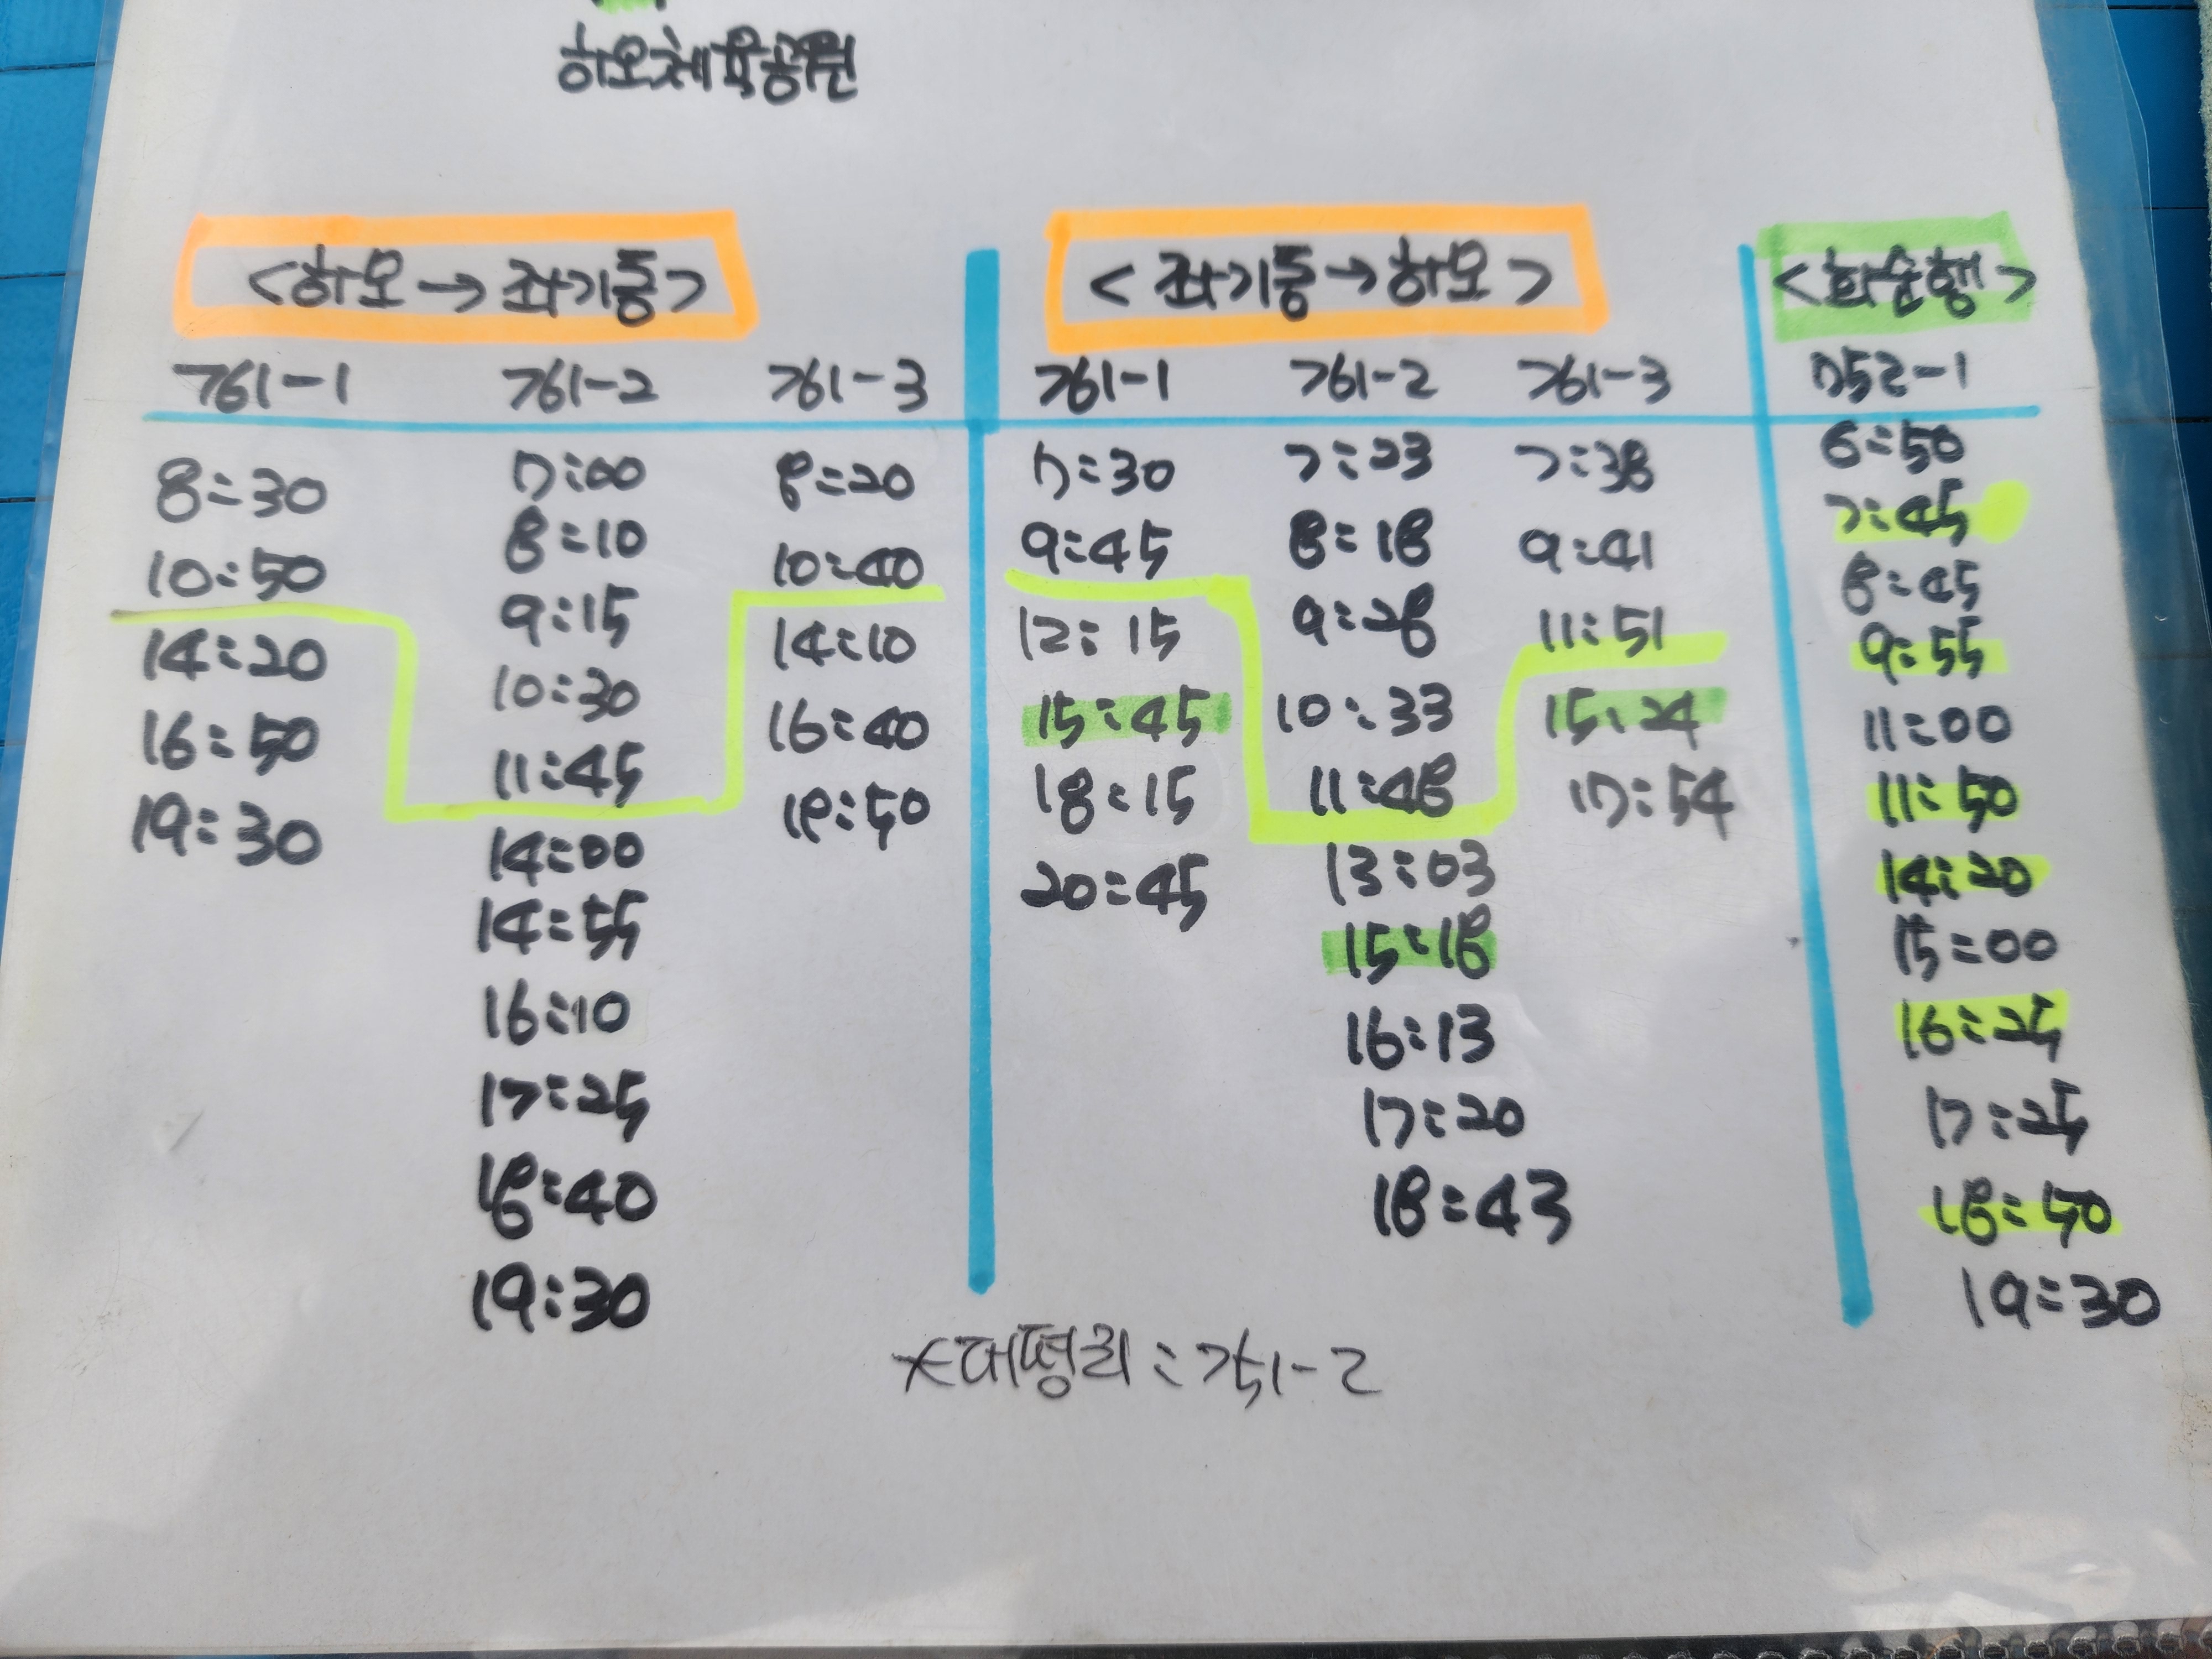 하모체육공원
<하모→좌기동> <좌기동→하모> <화순행>
761-1 761-2 761-3 761-1 761-2 761-3 752-1
8:30 7:00 8:20 7:30 7:23 7:38 6:50
10:50 8:10 10:40 9:45 8:18 9:41 7:45
14:20 9:15 14:10 12:15 9:28 11:51 8:45
16:50 10:30 16:40 15:45 10:33 15:24 9:55
19:30 11:45 18:15 11:48 17:54 11:00
14:00 20:45 13:03 11:50
14:55 15:18 14:20
16:10 16:13 15:00
17:25 17:20 16:25
18:40 18:43 17:25
19:30 18:50
19:30
*대평리:751-2